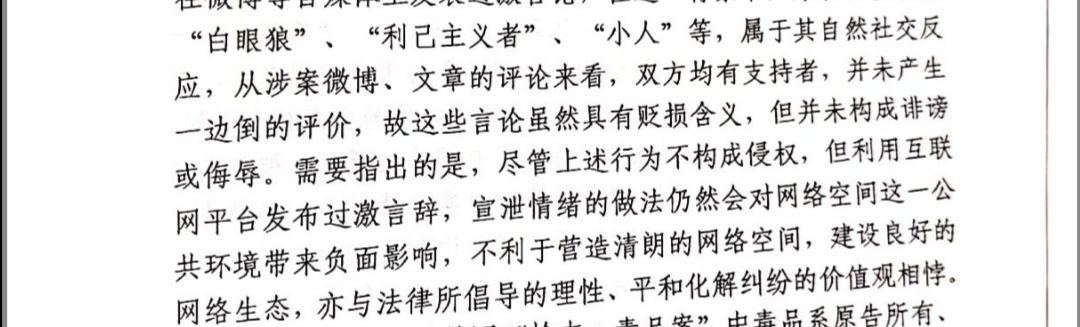 “白眼狼”、“利己主义者”、“小人”等，属于其自然社交反
应，从涉案微博、文章的评论来看，双方均有支持者，并未产生
一边倒的评价，故这些言论虽然具有贬损含义，但并未构成诽谤
或侮辱。需要指出的是，尽管上述行为不构成侵权，但利用互联
网平台发布过激言辞，宣泄情绪的做法仍然会对网络空间这一公
共环境带来负面影响，不利于营造清朗的网络空间，建设良好的
网络生态，亦与法律所倡导的理性、平和化解纠纷的价值观相悖。
毒品案”中毒品系原告所有、